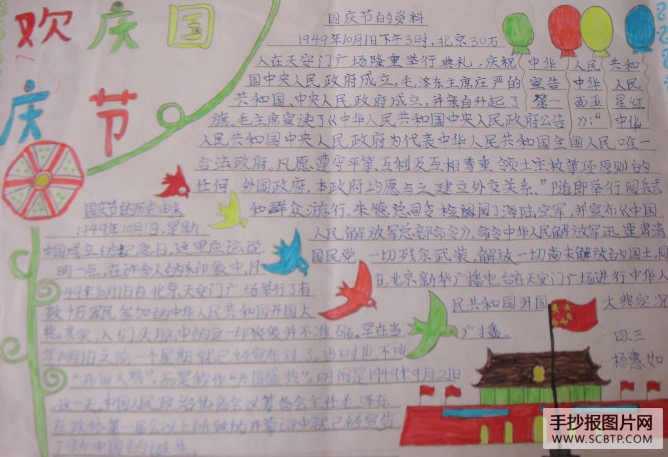 欢庆国庆节
国庆节的资料
1949年10月1日下午3时，北京30万
人在天安门广场隆重举行典礼，庆祝中华人民共和
国中央人民政府成立。毛泽东主席庄严的宣告中华人民
共和国、中央人民政府成立，并亲自升起了第一面五星红
旗。毛主席宣读了《中华人民共和国中央人民政府公告》："中华
人民共和国中央人民政府为代表中华人民共和国全国人民唯一
合法政府。凡愿遵守平等、互利及互相尊重领土主权等项原则的
任何外国政府，本政府均愿与之建立外交关系。"随即举行阅兵式
和群众游行，朱德总司令检阅海陆空军，并宣布《中国
人民解放军总部命令》，命令中华人民解放军迅速肃清
国民党一切残余武装，解放一切尚未解放的国土，同
日，北京新华广播电台在天安门广场进行中华人
民共和国开国大典实况
广播。
国庆节的历史由来
1949年10月1日，是新
中国成立的纪念日，这里应该说
明一点，在许多人的印象中，19
49年10月1日在北京天安门广场举行了有
数十万军民参加的中华人民共和国开国大
典。其实，人们头脑中的这一印象并不准确。早在当
年10月1日之前一个星期就已经宣布过了。当时也不叫
"开国大典"，而是称作"开国盛典"。时间是1949年9月21日
这一天，中国人民政治协商会议筹备会主任毛泽东
在政协第一届会议上所致的开幕词中就已经宣告
了新中国的诞生。
四.三
杨惠如
手抄报图片网
WWW.SCBTP.COM